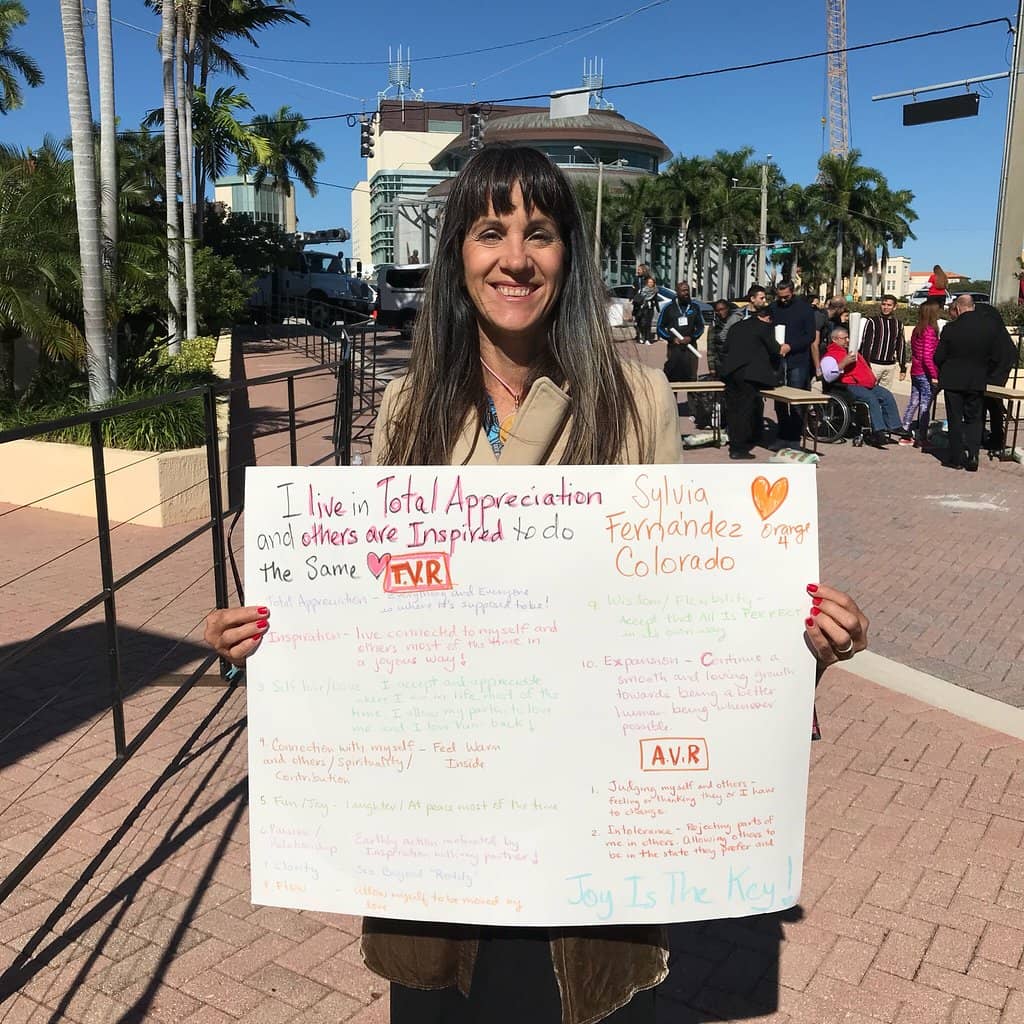 I live in Total Appreciation
and others are Inspired to do
the Same T.V.R
Sylvia
Fernández
Colorado
Orange
4
Total Appreciation - Everything and Everyone
is where it's supposed to be!
Inspiration - live connected to myself and
others most of the time in
a joyous way!
3. Self love/Love - I accept and appreciate
where I am in life most of the
time. I allow my partner to love
me and I love him back!
4. Connection with myself - Feel Warm
and others/Spirituality/ Inside
Contribution
5. Fun/Joy - Laughter/At peace most of the time
Earthly action motivated by
Relationship Inspiration with my partner!
7. Clarity - See Beyond "Reality"
8. Flow - allow myself to be moved by
love
9. Wisdom/Flexibility -
Accept that All Is PERFECT
in its own way
10. Expansion - Continue a
smooth and loving growth
towards being a better
human being whenever
possible.
A.V.R
1. Judging myself and others -
feeling or thinking they or I have
to change.
2. Intolerance - Rejecting parts of
me in others. Allowing others to
be in the state they prefer and
Joy Is The Key!